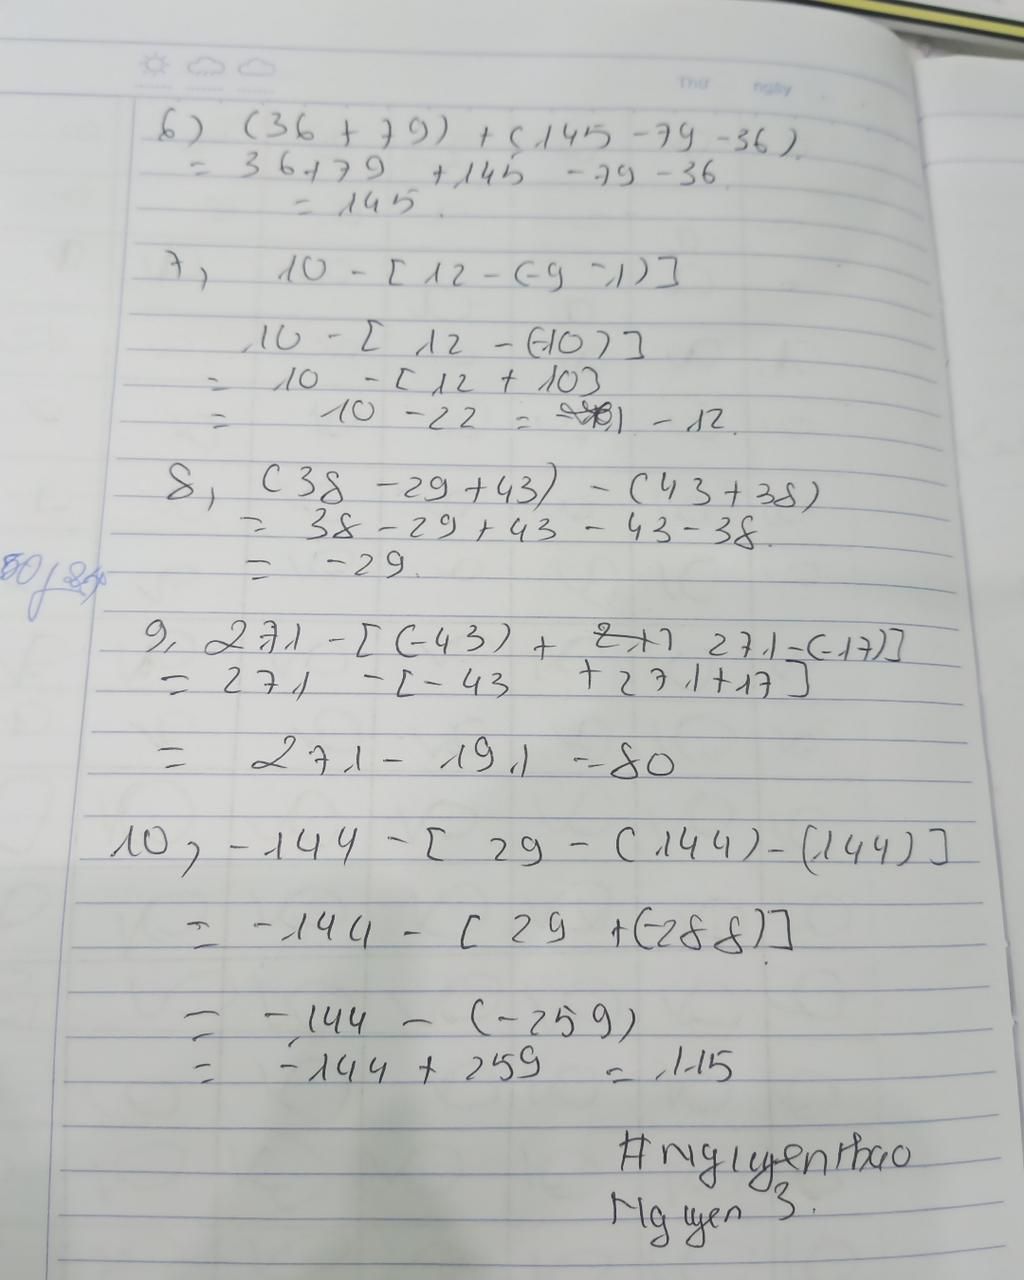 Thứ ngày
6) (36 + 79) + (145 - 79 - 36).
= 36 + 79 + 145 - 79 - 36
= 145.
7, 10 - [12 - (-9 -1)]
10 - [12 - (-10)]
= 10 - [12 + 10]
= 10 - 22 = - 12.
8, (38 - 29 + 43) - (43 + 38)
= 38 - 29 + 43 - 43 - 38.
= -29.
9, 271 - [(-43) + 271 - (-17)]
= 271 - [-43 + 271 + 17]
= 271 - 191 - 80
10, -144 - [29 - (144) - (144)]
= -144 - [29 + (-288)]
= -144 - (-259)
= -144 + 259 = 115
#nguyenthao
Nguyen 3.